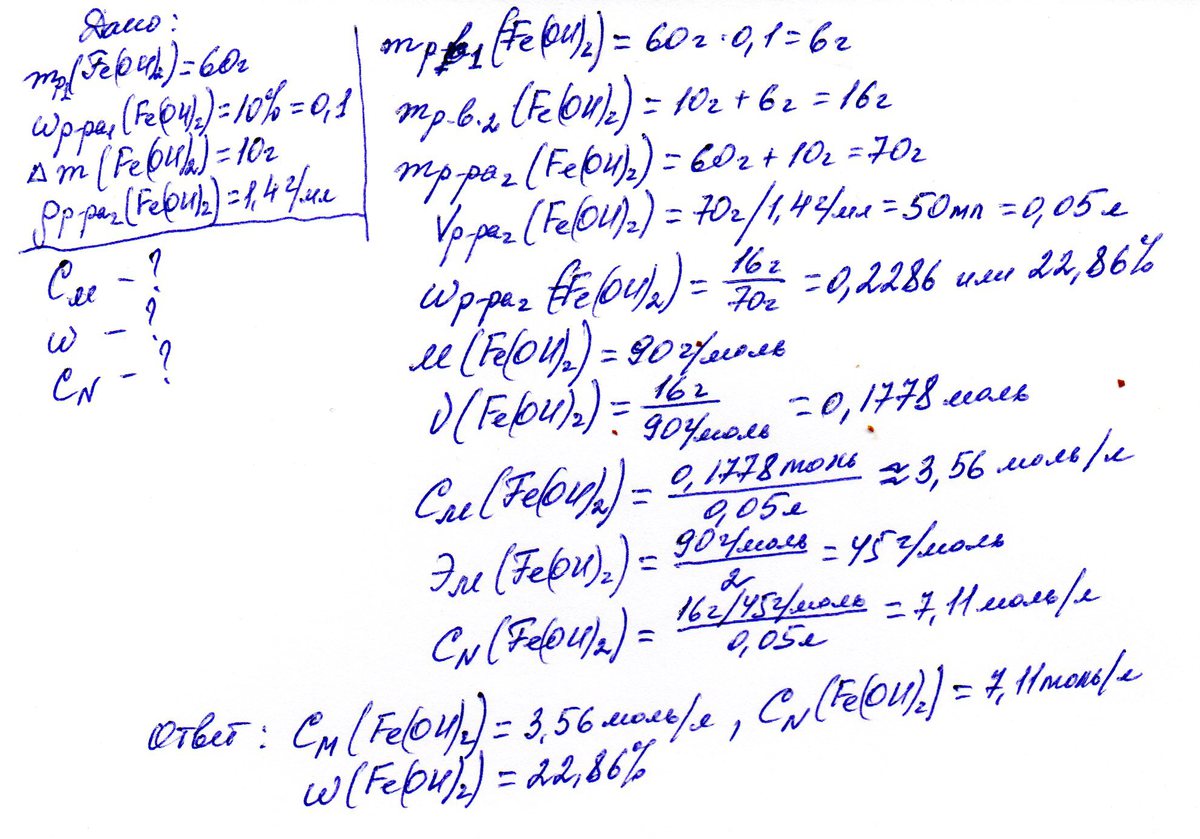 Дано:
mр₁(Fe(OH)₂)=60г
ωр-ра₁(Fe(OH)₂)=10%=0,1
Δm(Fe(OH)₂)=10г
ρр-ра₂(Fe(OH)₂)=1,4г/мл
Cм - ?
ω - ?
C_N - ?
mр.в.1(Fe(OH)₂)=60г·0,1=6г
mр.в.2(Fe(OH)₂)=10г+6г=16г
mр-ра₂(Fe(OH)₂)=60г+10г=70г
Vр-ра₂(Fe(OH)₂)=70г/1,4г/мл=50мл=0,05л
ωр-ра₂(Fe(OH)₂)=16г/70г=0,2286 или 22,86%
M(Fe(OH)₂)=90г/моль
ν(Fe(OH)₂)=16г/90г/моль=0,1778моль
Cм(Fe(OH)₂)=0,1778моль/0,05л≈3,56 моль/л
Эм(Fe(OH)₂)=90г/моль/2=45г/моль
C_N(Fe(OH)₂)=16г/45г/моль/0,05л=7,11моль/л
Ответ: Cм(Fe(OH)₂)=3,56моль/л, C_N(Fe(OH)₂)=7,11моль/л
ω(Fe(OH)₂)=22,86%